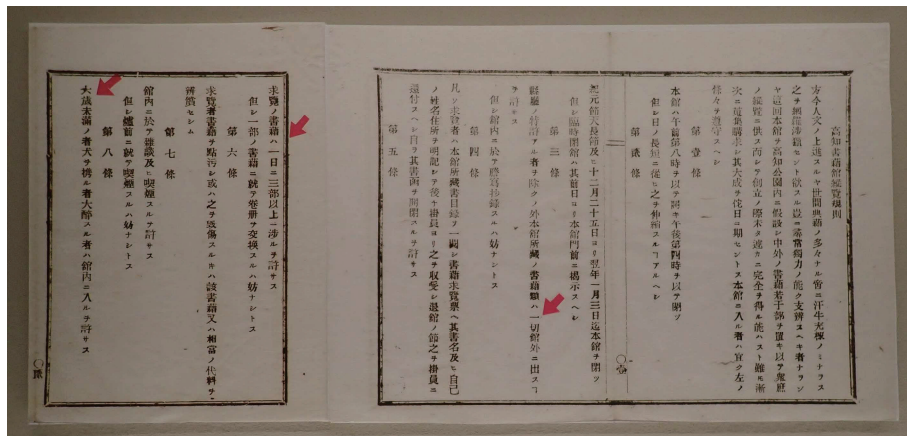 高知書籍館縦覧規則
方今人文ノ上進スルヤ世間典籍ノ多々ナル啻ニ汗牛充棟ノミナラス
之ヲ網羅渉獵セント欲スル豈ニ尋常獨力ノ能ク支辨スヘキ者ナラン
ヤ這回本館ヲ高知公園内ニ假設シ中外ノ書籍若干部ヲ置キ以テ衆庶
ノ縦覧ニ供ス而シテ創立ノ際未タ遽カニ完全ヲ得ル能ハスト雖𪜈漸
次ニ蒐集購求シ其大成ヲ他日ニ期セントス本館ニ入ル者ハ宜ク左ノ
條々ヲ遵守スヘシ
第壹條
本館ハ午前第八時ヲ以テ開キ午後第四時ヲ以テ閉ツ
但シ日ノ長短ニ從ヒ之ヲ伸縮スルヿアルヘシ
第貳條
紀元節天長節及ヒ十二月二十五日ヨリ翌年一月三日迄本館ヲ閉ツ
但シ臨時閉館ハ其前日ヨリ本館門前ニ掲示スヘシ
第三條
縣廳ノ特許アル者ヲ除クノ外本館所藏ノ書籍類ハ一切館外ニ出スヿ
ヲ許サス
但シ館内ニ於テ謄寫抄録スルハ妨ナシトス
第四條
凡ソ求覧者ハ本館所藏書目録ヲ一閲シ書籍求覧票ヘ其書名及ヒ自己
ノ姓名住所ヲ明記シテ後チ掛員ヨリ之ヲ収受シ退館ノ節之ヲ掛員ニ
還付スヘシ自ラ其書函ヲ開閉スルヲ許サス
第五條
〇壹
求覧ノ書籍ハ一日ニ三部以上ニ渉ルヲ許サス
但シ一部ノ書籍ニ就テ卷册ヲ交換スルハ妨ナシトス
第六條
求覧者書籍ヲ點汚シ或ハ之ヲ毀傷スルキハ該書籍又ハ相當ノ代料ヲ
辨償セシム
第七條
館内ニ於テ雜談及ヒ喫烟スルヲ許サス
但シ爐前ニ就テ喫烟スルハ妨ナシトス
第八條
六歳未滿ノ者犬ヲ携ル者大醉スル者ハ館内ニ入ルヲ許サス
〇貳